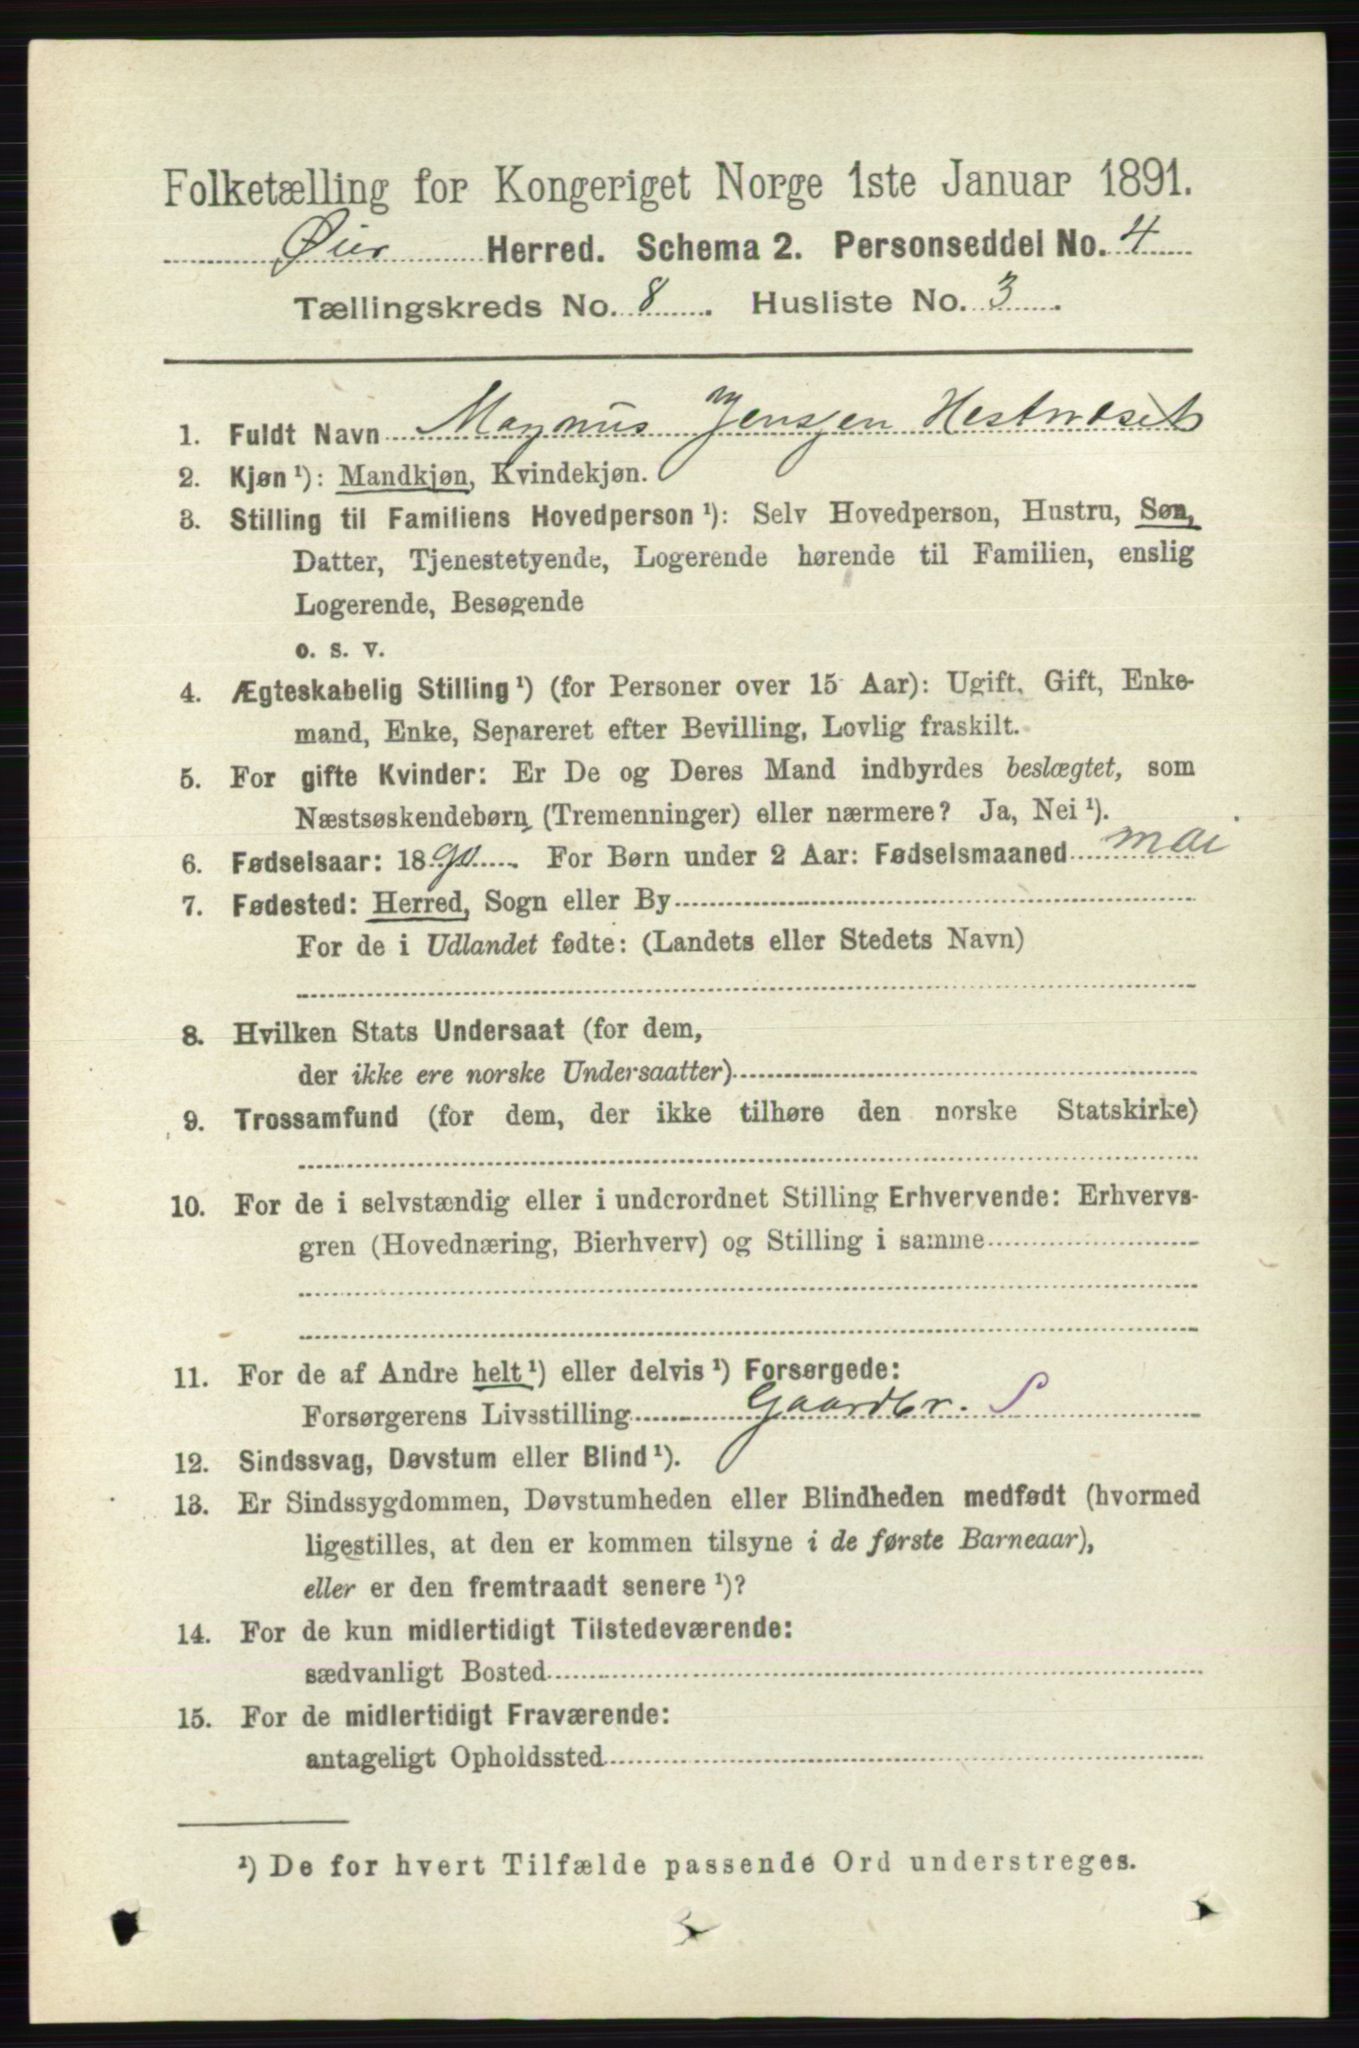 Folketælling for Kongeriget Norge 1ste Januar 1891.
Øier Herred. Schema 2. Personseddel No. 4
Tællingskreds No. 8. Husliste No. 3.
1. Fuldt Navn Magnus Jensen Hestnæset
2. Kjøn ¹): Mandkjøn, Kvindekjøn.
3. Stilling til Familiens Hovedperson ¹): Selv Hovedperson, Hustru, Søn,
Datter, Tjenestetyende, Logerende hørende til Familien, enslig
Logerende, Besøgende
o. s. v.
4. Ægteskabelig Stilling ¹) (for Personer over 15 Aar): Ugift, Gift, Enke-
mand, Enke, Separeret efter Bevilling, Lovlig fraskilt.
5. For gifte Kvinder: Er De og Deres Mand indbyrdes beslægtet, som
Næstsøskendebørn (Tremenninger) eller nærmere? Ja, Nei ¹).
6. Fødselsaar: 1890. For Børn under 2 Aar: Fødselsmaaned mai
7. Fødested: Herred, Sogn eller By
For de i Udlandet fødte: (Landets eller Stedets Navn)
8. Hvilken Stats Undersaat (for dem,
der ikke ere norske Undersaatter)
9. Trossamfund (for dem, der ikke tilhøre den norske Statskirke)
10. For de i selvstændig eller i underordnet Stilling Erhvervende: Erhvervs-
gren (Hovednæring, Bierhverv) og Stilling i samme
11. For de af Andre helt ¹) eller delvis ¹) Forsørgede:
Forsørgerens Livsstilling Gaardbr. S
12. Sindssvag, Døvstum eller Blind ¹).
13. Er Sindssygdommen, Døvstumheden eller Blindheden medfødt (hvormed
ligestilles, at den er kommen tilsyne i de første Barneaar),
eller er den fremtraadt senere ¹)?
14. For de kun midlertidigt Tilstedeværende:
sædvanligt Bosted
15. For de midlertidigt Fraværende:
antageligt Opholdssted
¹) De for hvert Tilfælde passende Ord understreges.